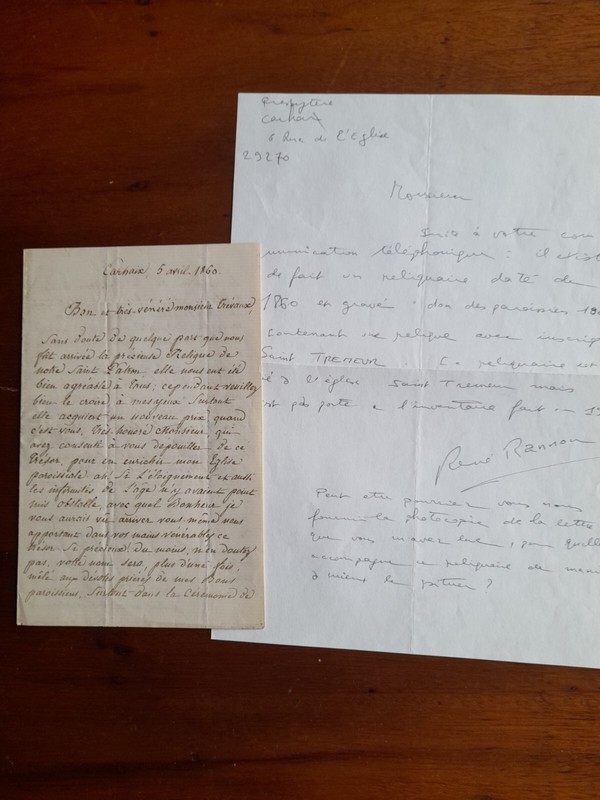 Carhaix, 5 avril. 1860.
Bon et très-vénéré monsieur Trévaux,
Sans doute de quelque part que nous
fût arrivée la précieuse Relique de
notre Saint Patron, elle nous eut été
bien agréable à tous; cependant veuillez
bien le croire, à mes yeux surtout
elle acquiert un nouveau prix, quand
c'est vous, très-honoré Monsieur, qui
avez consenti à vous dépouiller de ce
trésor, pour en enrichir mon Eglise
paroissiale. ah! si l'éloignement et aussi
les infirmités de l'age n'y avaient point
mis obstable, avec quel bonheur je
vous aurais vu arriver vous même nous
apportant dans vos mains vénérables ce
trésor si précieux! Du moins, n'en doutez
pas, votre nom sera, plus d'une fois,
mêlé aux dévotes prières de mes bons
paroissiens, surtout dans la Cérémonie de
Presbytère
Carhaix
6 Rue de l'Eglise
29270
Monsieur
Suite à votre com
munication téléphonique : il exist
de fait un reliquaire daté de
1860 et gravé "don des paroisses 18
contenant une relique avec inscrip
Saint TREMEUR. Ce reliquaire est
é à l'église Saint Tremeur mais
est pas porté à l'inventaire fait en 19
René
Peut etre pourriez vous nous
fournir la photocopie de la lettre
que vous m'avez lue, pour qu'elle
accompagne ce reliquaire de maniè
à mieux le situer ?